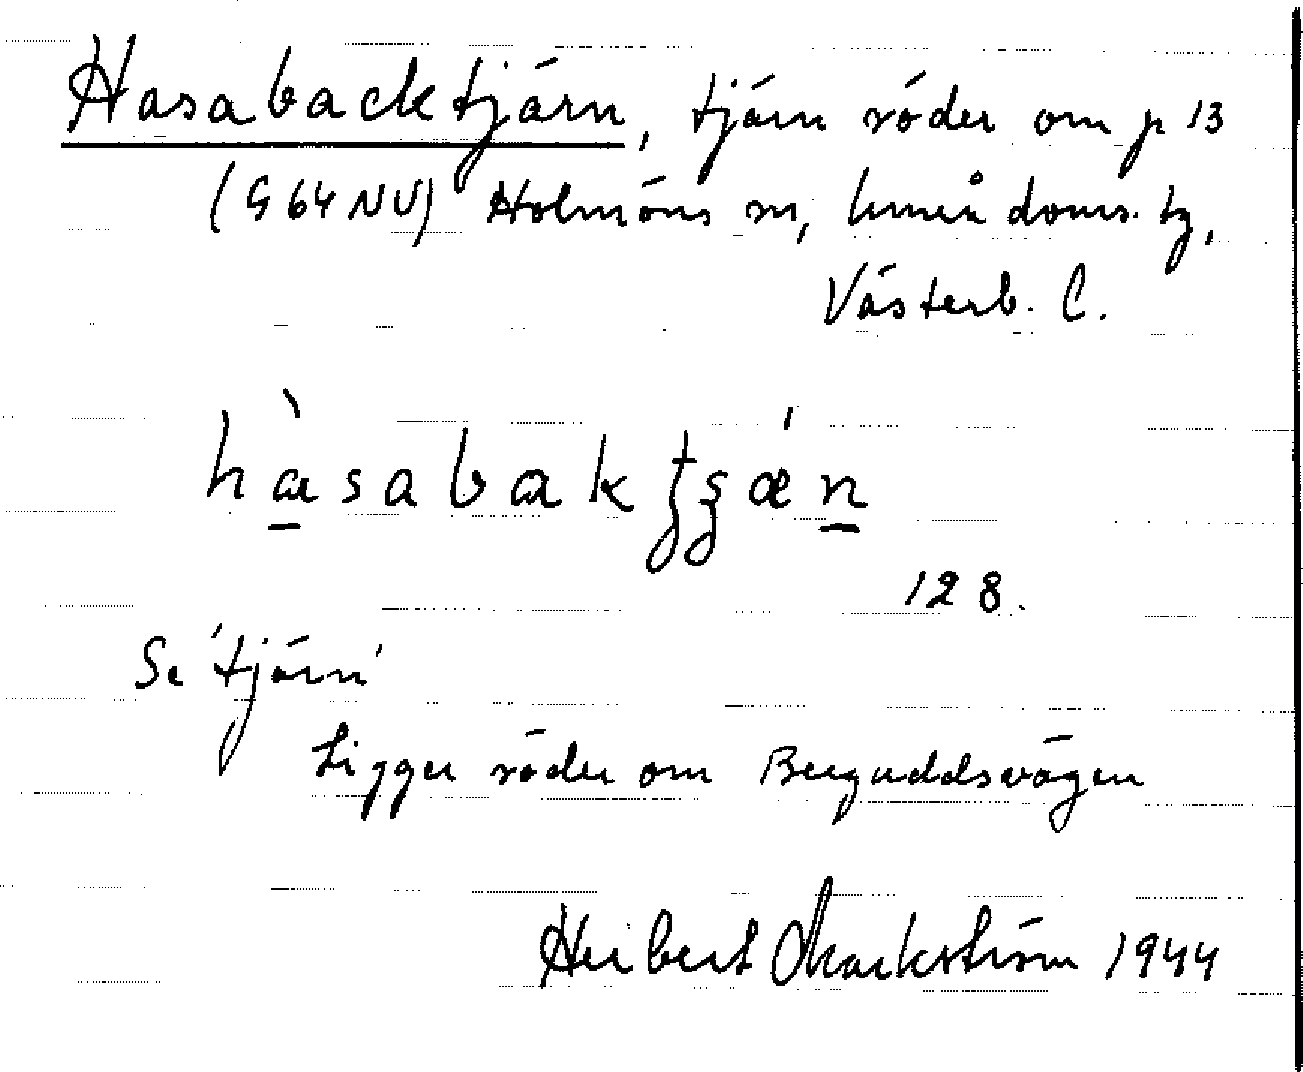 Hasabacktjärn, tjärn söder om p 13
(G 64 NV) Holmöns sn, Umeå doms. tg,
Västerb. l.
hàsabak tʂǽn
128.
Se 'tjärn'
Ligger söder om Berguddsvägen
Herbert Markström 1944